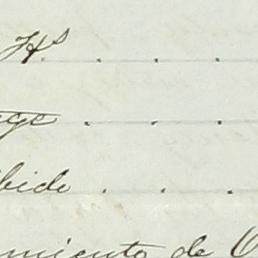 Hs . . .
ege . . .
bide . . .
miento de